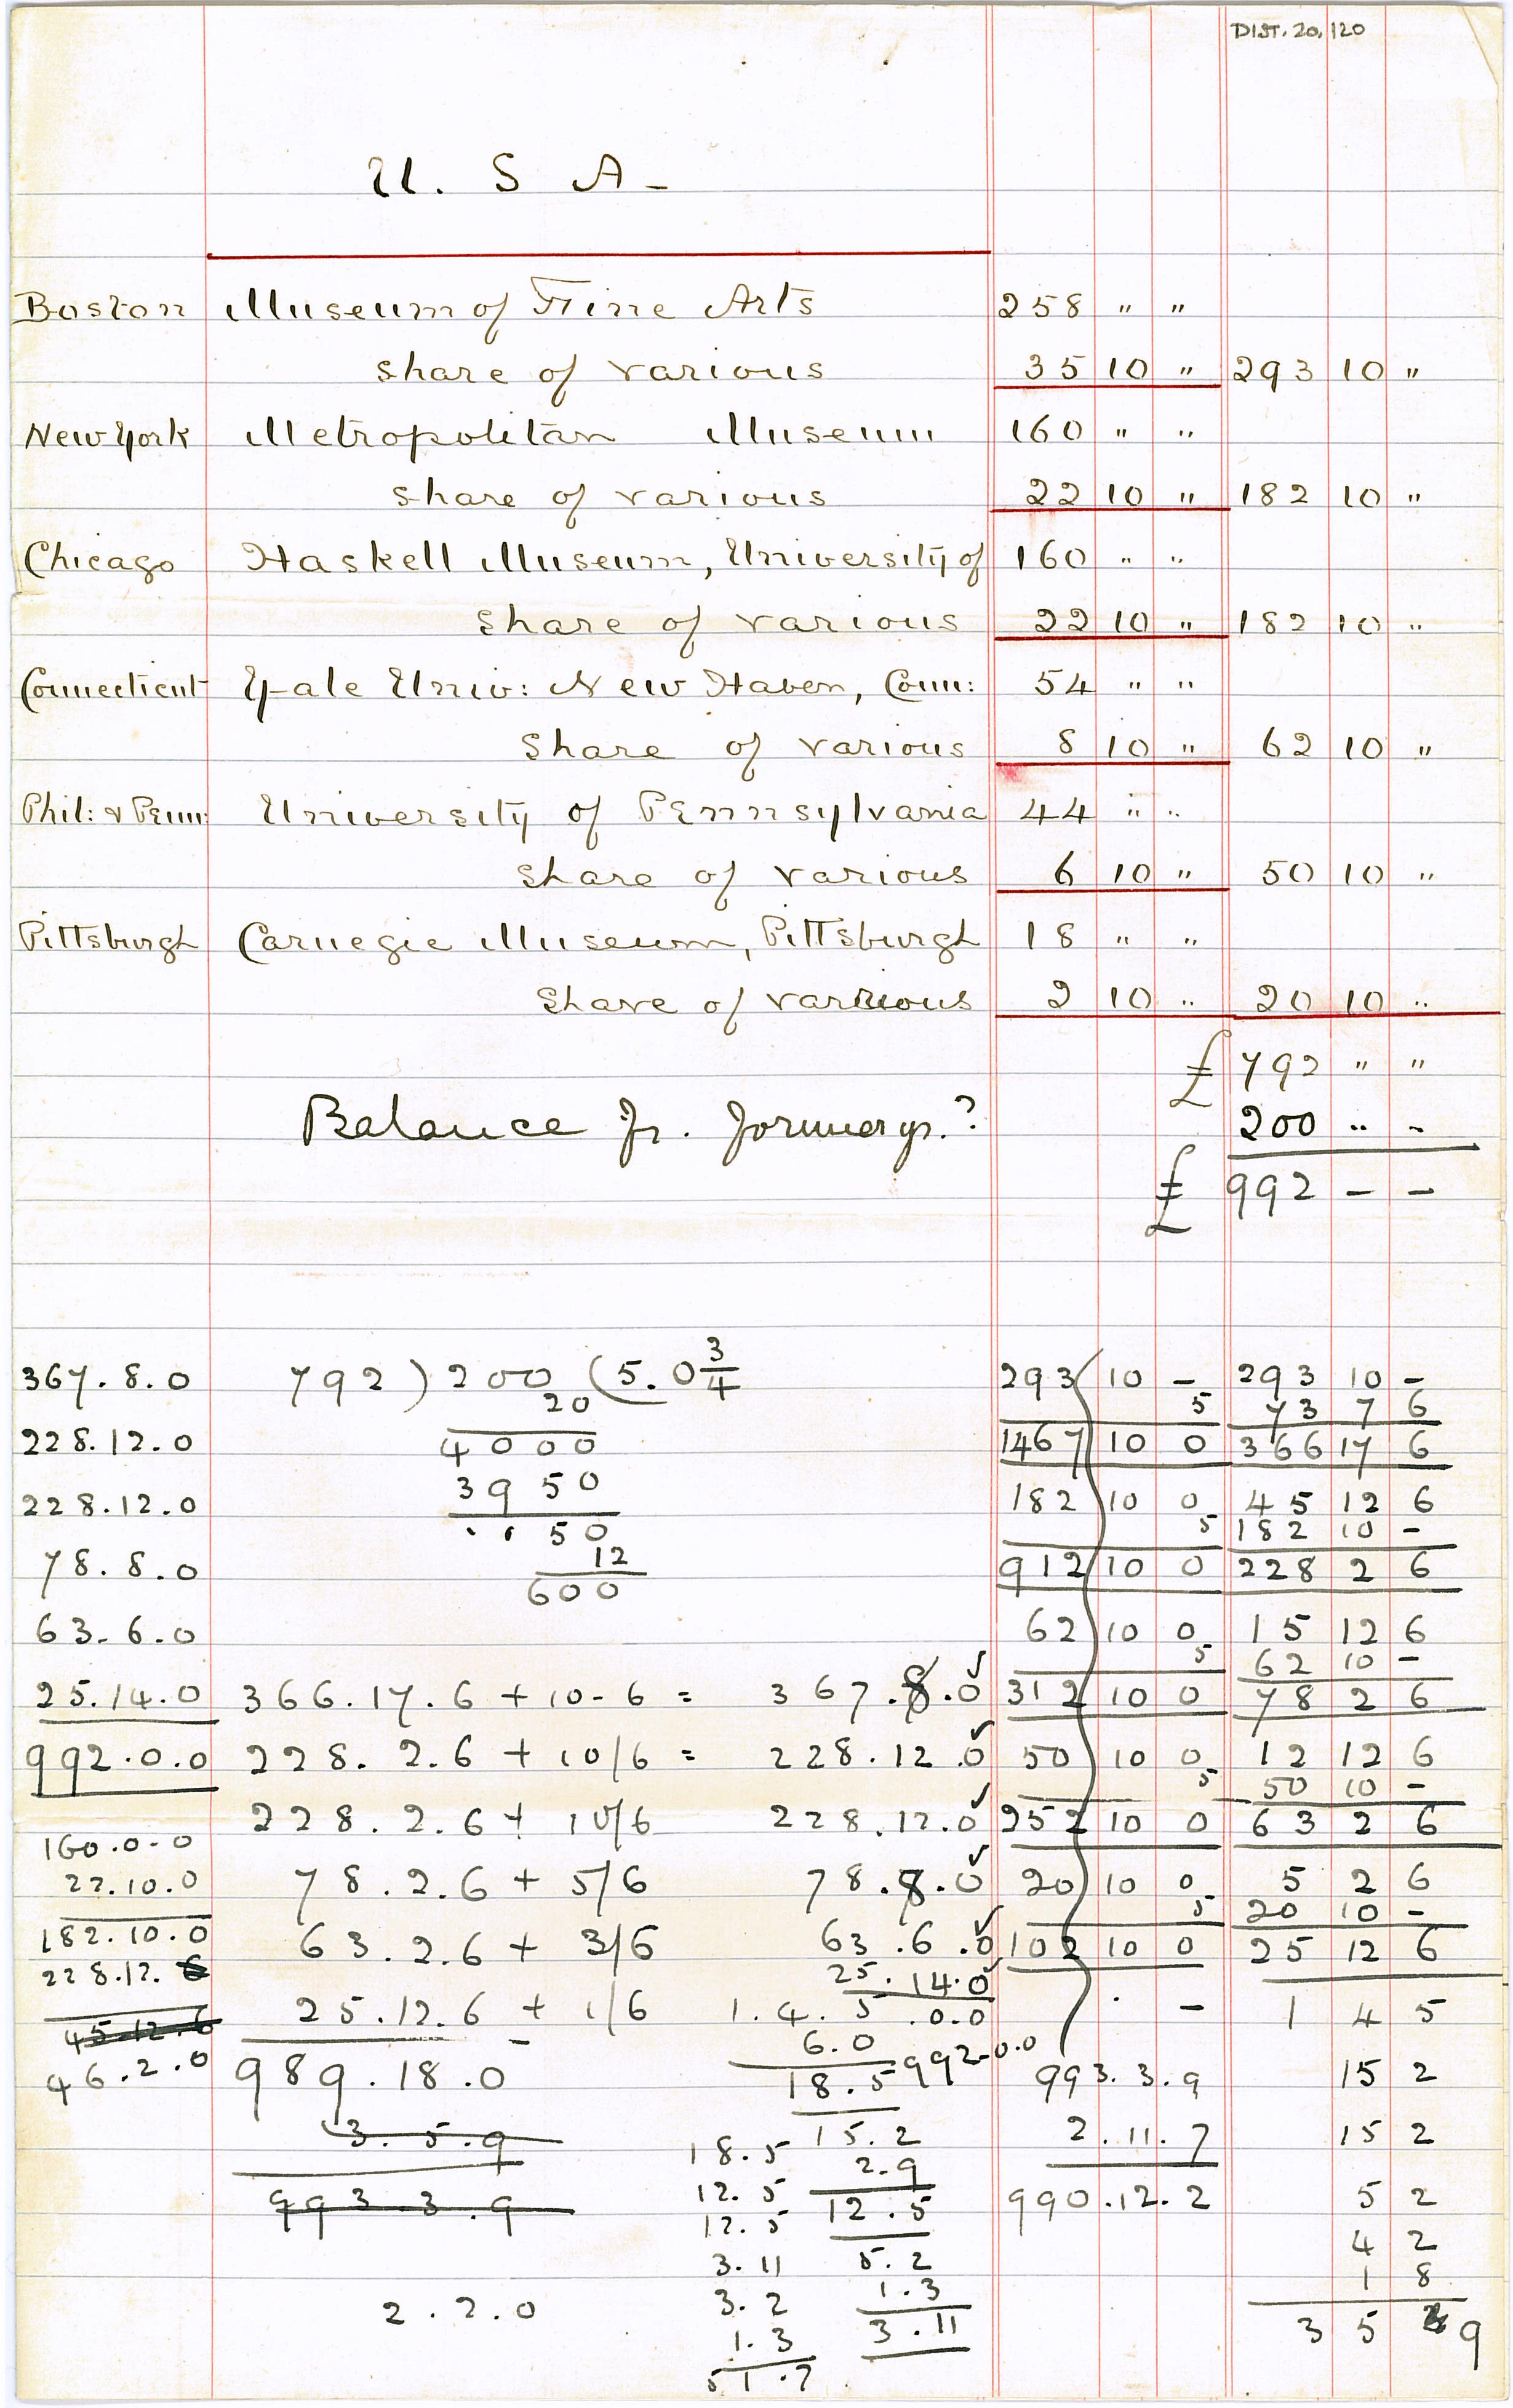 DIST. 20,120
U. S A-
Boston Museum of Fine Arts 258 " "
share of various 35 10 " 293 10 "
New York Metropolitan Museum 160 " "
share of various 22 10 " 182 10 "
Chicago Haskell Museum, University of 160 " "
share of various 22 10 " 182 10 "
Connecticut Yale Univ: New Haven, Conn: 54 " "
share of various 8 10 " 62 10 "
Phil: & Penn: University of Pennsylvania 44 " "
share of various 6 10 " 50 10 "
Pittsburgh Carnegie Museum, Pittsburgh 18 " "
share of various 2 10 " 20 10 "
£ 792 " "
Balance fr. former yr.? 200 " -
£ 992 - -
367.8.0 792 ) 200 ( 5.0 3/4 293 10 - 293 10 -
20 5 73 7 6
228.12.0 4000 1467 10 0 366 17 6
3950
228.12.0 182 10 0 45 12 6
50 5 182 10 -
78.8.0 12 912 10 0 228 2 6
600
63.6.0 62 10 0 15 12 6
5 62 10 -
25.14.0 366.17.6 + 10-6 = 367.8.0 312 10 0 78 2 6
992.0.0 228.2.6 + 10/6 = 228.12.0 50 10 0 12 12 6
5 50 10 -
228.2.6 + 10/6 228.12.0 252 10 0 63 2 6
160.0-0
22.10.0 78.2.6 + 5/6 78.8.0 20 10 0 5 2 6
5 20 10 -
182.10.0 63.2.6 + 3/6 63.6.0 102 10 0 25 12 6
228.12.6 25.14.0
25.12.6 + 1/6 1.4.5 .0.0 - 1 4 5
45.12.6 6.0 992-0.0
46.2.0 989.18.0 18.5 993.3.9 15 2
3.5.9 18.5 15.2 2.11.7 15 2
2.9
993.3.9 12.5 12.5 990.12.2 5 2
12.5
3.11 5.2 4 2
2.2.0 3.2 1.3 1 8
1.3 3.11 3 5 9
51.7